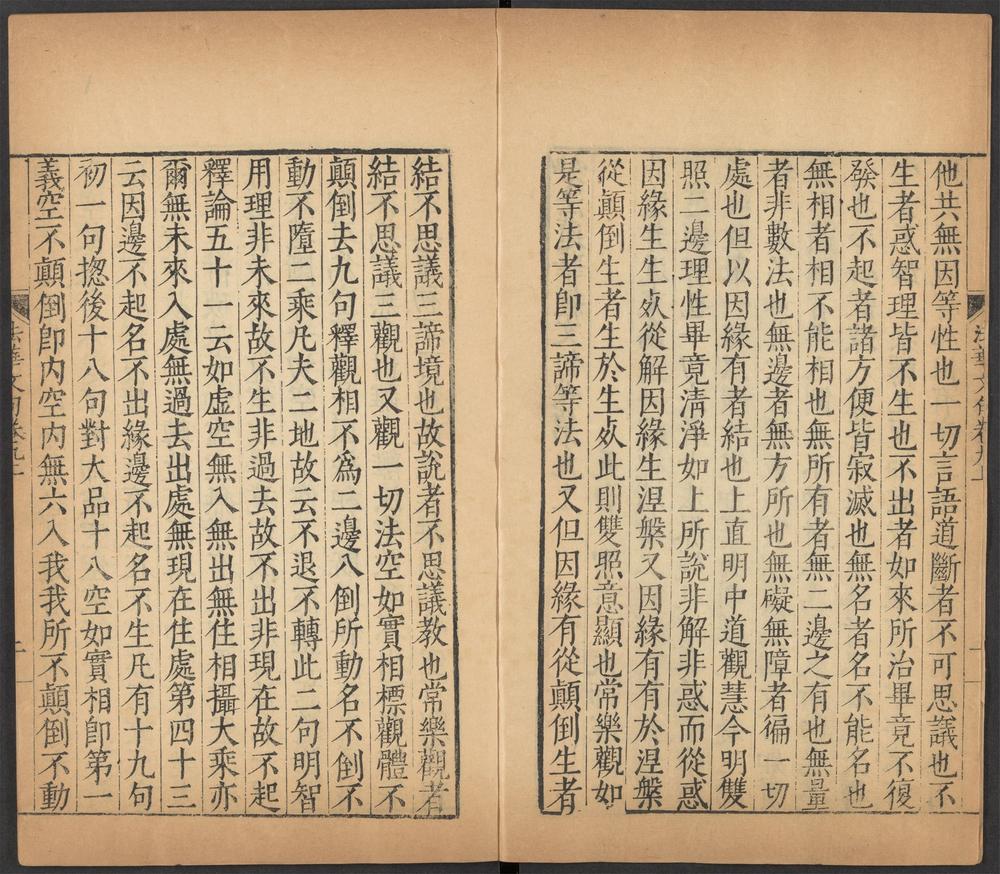 他共無因等性也一切言語道斷者不可思議也不
生者惑智理皆不生也不出者如來所治畢竟不復
發也不起者諸方便皆寂滅也無名者名不能名也
無相者相不能相也無所有者無二邊之有也無量
者非數法也無邊者無方所也無礙無障者徧一切
處也但以因緣有者結也上直明中道觀慧今明雙
照二邊理性畢竟清淨如上所說非解非惑而從惑
因緣生生死從解因緣生涅槃又因緣有有於涅槃
從顛倒生者生於生死此則雙照意顯也常樂觀如
是等法者即三諦等法也又但因緣有從顛倒生者
法華文句卷九上
結不思議三諦境也故說者不思議教也常樂觀者
結不思議三觀也又觀一切法空如實相標觀體不
顛倒去九句釋觀相不為二邊八倒所動名不倒不
動不墮二乘凡夫二地故云不退不轉此二句明智
用理非未來故不生非過去故不出非現在故不起
釋論五十一云如虛空無入無出無住相攝大乘亦
爾無未來入處無過去出處無現在住處第四十三
云因邊不起名不出緣邊不起名不生凡有十九句
初一句揔後十八句對大品十八空如實相即第一
義空不顛倒即內空內無六入我我所不顛倒不動
法華文句卷九上